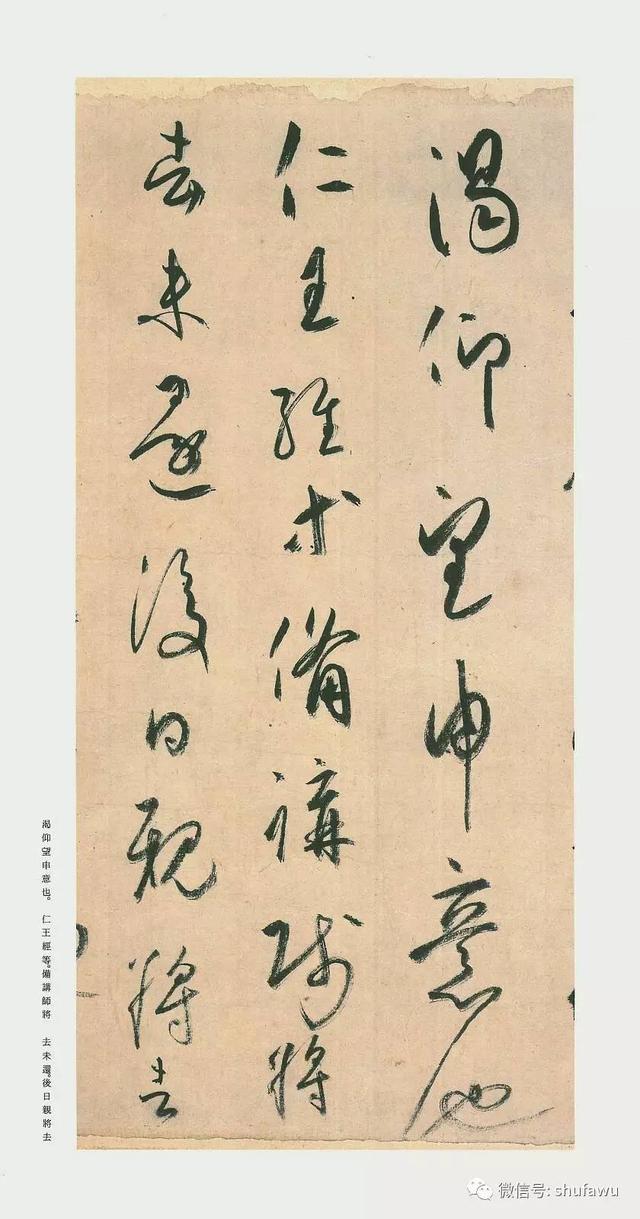 渴仰望申意也
仁王經等備講師將
去未還後日親將去
渴仰望申意也。仁王經等。備講師將　去未還。後日親將去
微信号: shufawu